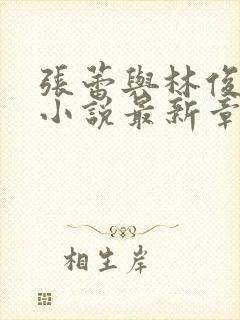 張蕾與林俊
小說最新章
相生岸